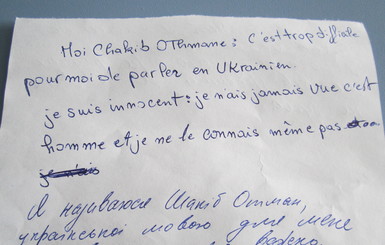 Moi Chakib OThmane : c'est trop difficile
pour moi de parler en Ukrainien.
je suis innocent : je n'ais jamais vue c'est
homme et je ne le connais même pas
Я називаюся Шакіб Отман,
української мовою для мене
важко